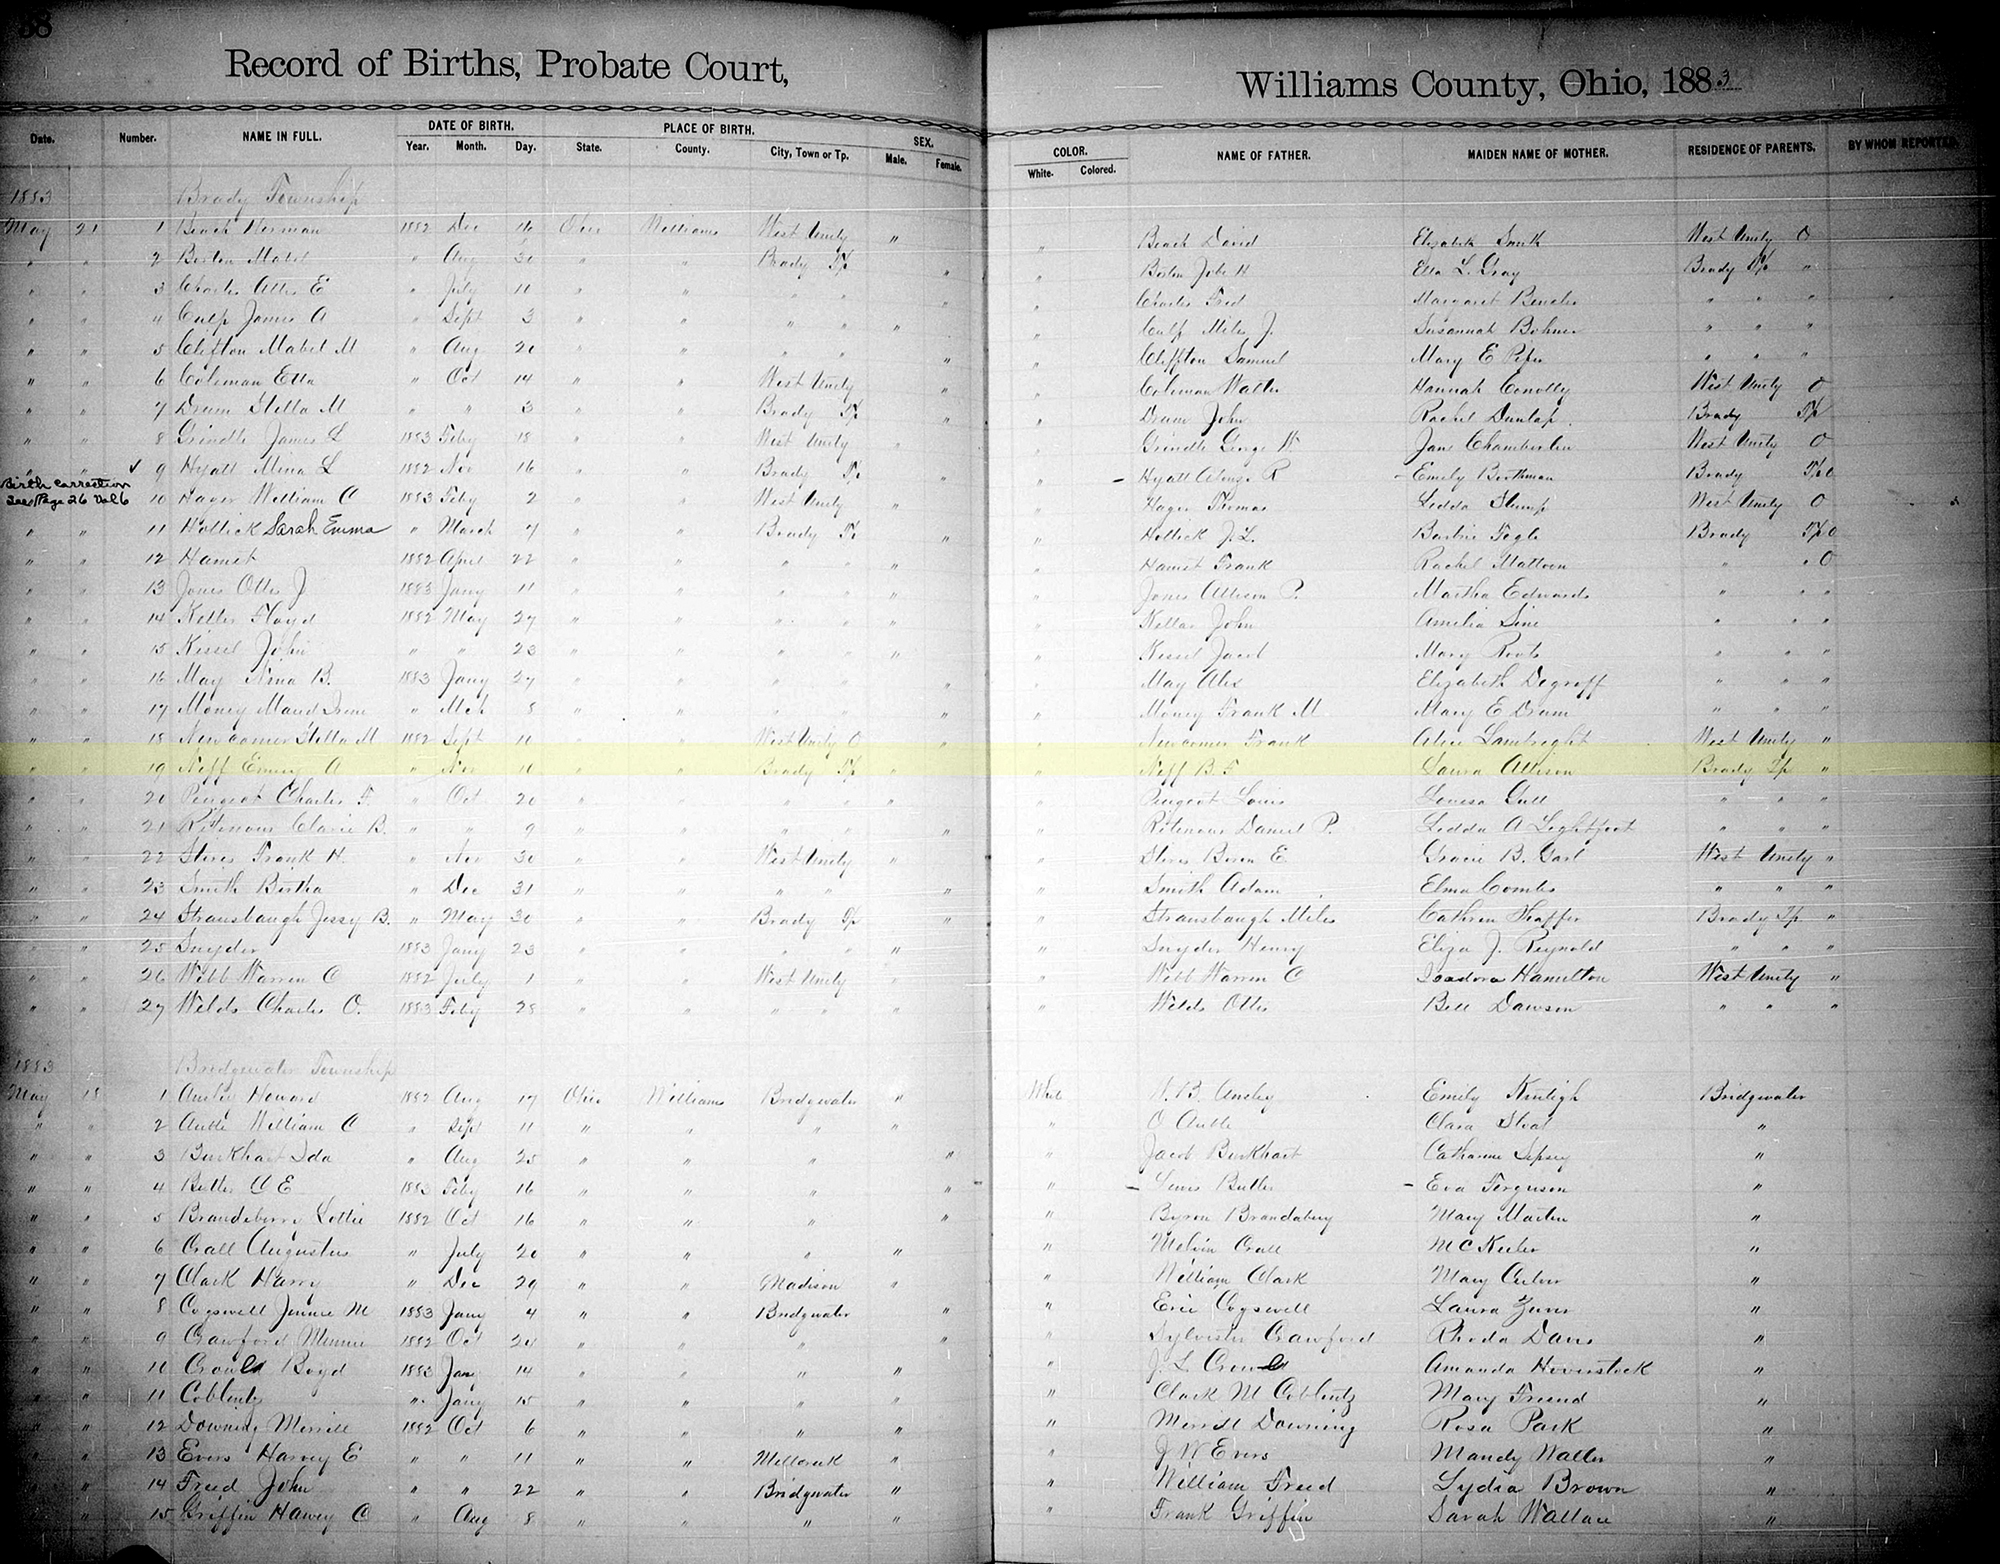 38
Record of Births, Probate Court, Williams County, Ohio, 1883
Date. Number. NAME IN FULL. DATE OF BIRTH. PLACE OF BIRTH. SEX. COLOR. NAME OF FATHER. MAIDEN NAME OF MOTHER. RESIDENCE OF PARENTS. BY WHOM REPORTED
Year. Month. Day. State. County. City, Town or Tp. Male. Female. White. Colored.
1883 Brady Township
May 21 1 Beach Herman 1882 Dec 16 Ohio Williams West Unity " " Beach David Elizabeth Smith West Unity O
" " 2 Mabel " Aug 30 " " Brady Tp " " Ella L. Gray Brady Tp "
" " 3 Charles E " July 11 " " " " " " Charles Fred Margaret " " "
" " 4 Culp James A " Sept 3 " " " " " " Culp Miles J. Susannah Bohner " " "
" " 5 Clifton Mabel M " Aug 20 " " " " " " Cliffton Samuel Mary E Pifer " " "
" " 6 Coleman Etta " Oct 14 " " West Unity " " Coleman Walter Hannah Conolly West Unity O
" " 7 Drum Stella M " " 3 " " Brady Tp " " Drum John Rachel Dunlap. Brady Tp
" " 8 Grindle James L 1883 Feby 18 " " West Unity " " Grindle George W Jane Chamberlin West Unity O
" " ✓ 9 Hyatt Mina L 1882 Nov 16 " " Brady Tp " " - Hyatt Alonzo R - Emily Borthman Brady Tp O
Birth correction See Page 26 Vol 6 10 Hager William C 1883 Feby 2 " " West Unity " " Hager Thomas Stump West Unity O
" " 11 Hollick Sarah Emma " March 7 " " Brady Tp " " Hollick J. L. Fogle Brady Tp O
" " 12 Hamet 1882 April 22 " " " " " " Hamet Frank Rachel Mattoon " " O
" " 13 Jones Otto J 1883 Jany 11 " " " " " " Jones Allison P. Martha Edwards " " "
" " 14 Keller Floyd 1882 May 27 " " " " " " Kellar John Amelia Sine " " "
" " 15 Kissel John " " 23 " " " " " " Kissel Jacob Mary Roots " " "
" " 16 May Nina B. 1883 Jany 27 " " " " " " May Alex Elizabeth Degroff " " "
" " 17 Money Maud Irene " Mch 8 " " " " " " Money Frank M Mary E Drum " " "
" " 18 Newcomer Stella M 1882 Sept 11 " " West Unity O " " Newcomer Frank Alice Lambright West Unity "
" " 19 Neff Emery A " Nov 10 " " Brady Tp " " Neff B. F Laura Allison Brady Tp "
" " 20 Peugeot Charles F. " Oct 20 " " " " " " Peugeot Louis Louisa Gull " " "
" " 21 Ritenour Clarie B. " " 9 " " " " " " Ritenour Daniel P. A Lightfoot " " "
" " 22 Frank H. " Nov 30 " " West Unity " " E Gracie B. Gast West Unity "
" " 23 Smith Bertha " Dec 31 " " " " " " Smith Adam Elma Combs " " "
" " 24 Strausbaugh Jessy B. " May 30 " " Brady Tp " " Strausbaugh Miles Cathren Shaffer Brady Tp "
" " 25 Snyder 1883 Jany 23 " " " " " " Snyder Henry Eliza J. Reynold " " "
" " 26 Webb Warren C 1882 July 1 " " West Unity " " Webb Warren C Isadora Hamilton West Unity "
" " 27 Welds Charles O. 1883 Feby 28 " " " " " " Welds Otto Bell Dawson " " "
1883 Bridgewater Township
May 18 1 Howard 1882 Aug 17 Ohio Williams Bridgwater " White N. B. Ansley Emily Kintigh Bridgwater
" " 2 Autte William C " Sept 11 " " " " " O Autte Clara Sloat "
" " 3 Burkhart Ida " Aug 25 " " " " " Jacob Burkhart Catharine Lipsey "
" " 4 Butler C E 1883 Feby 16 " " " " " - Lewis Butler - Eva Ferguson "
" " 5 Brandeberry Lottie 1882 Oct 16 " " " " " Byron Brandabery Mary Martin "
" " 6 Crall Augustus " July 20 " " " " " Melvin Crall McKeeler "
" " 7 Clark Harry " Dec 29 " " Madison " " William Clark Mary Culver "
" " 8 Cogswell Jennie M 1883 Jany 4 " " Bridgwater " " Eric Cogswell Laura Zuver "
" " 9 Crawford Minnie 1882 Oct 24 " " " " " Sylvister Crawford Rhoda Davis "
" " 10 Boyd 1883 Jany 14 " " " " " J. L. Amanda Hoverstock "
" " 11 Coblentz " Jany 15 " " " " " Clark M Coblentz Mary Friend "
" " 12 Downing Merrill 1882 Oct 6 " " " " " Merrill Downing Rosa Park "
" " 13 Evers Harvey E " " 11 " " Millcreek " " J W Evers Mandy Waller "
" " 14 Freed John " " 22 " " Bridgwater " " William Freed Lydia Brown "
" " 15 Griffin Harvey C " Aug 8 " " " " " Frank Griffin Sarah Wallace "